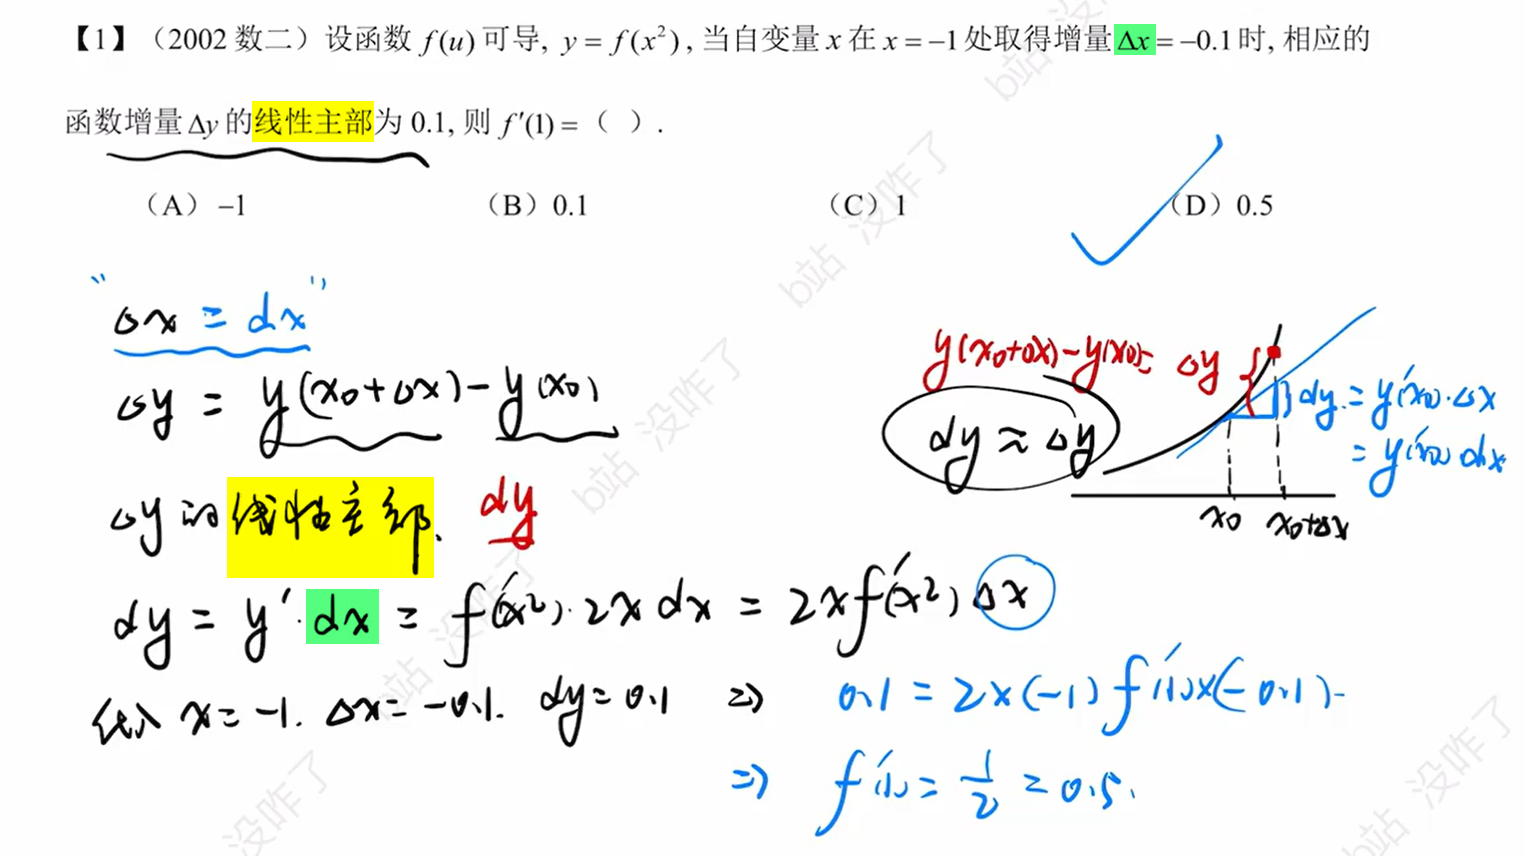 【1】（2002 数二）设函数 f(u) 可导, y = f(x²), 当自变量 x 在 x = −1 处取得增量 Δx = −0.1 时, 相应的
函数增量 Δy 的线性主部为 0.1, 则 f′(1) = （ ）.
（A）−1 （B）0.1 （C）1 （D）0.5
“Δx = dx”
Δy = y(x₀+Δx) − y(x₀)
Δy的线性主部. dy
dy = y′·dx = f′(x²)·2x dx = 2x f′(x²) Δx
代入 x = −1. Δx = −0.1. dy = 0.1 ⇒ 0.1 = 2×(−1) f′(1)×(−0.1).
⇒ f′(1) = 1/2 = 0.5.
y(x₀+Δx) − y(x₀) = Δy
dy ≈ Δy
dy = y′(x₀)·Δx
= y′(x₀) dx
x₀ x₀+Δx
b站 没咋了
b站 没咋了
b站 没咋了
b站 没咋了
b站 没咋了
没咋了
b站 没咋了